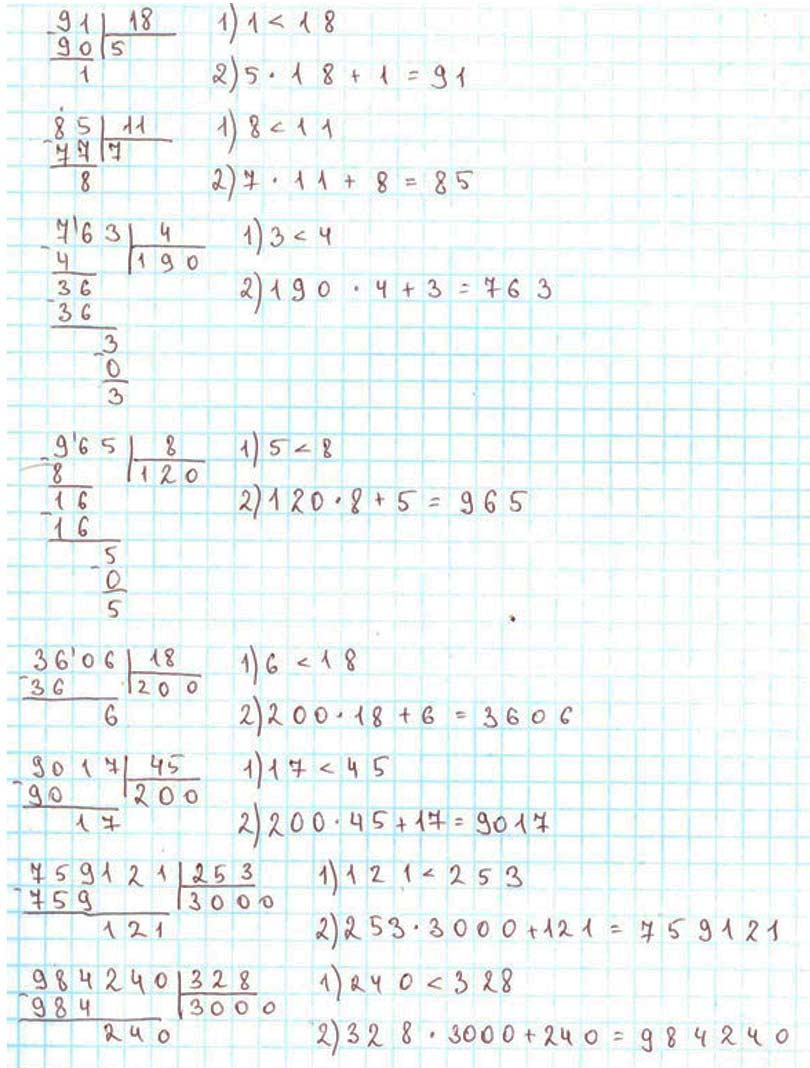 91 18 1) 1 < 18
90 5
1 2) 5 · 18 + 1 = 91
85 11 1) 8 < 11
77 7
8 2) 7 · 11 + 8 = 85
7'63 4 1) 3 < 4
4 190
36 2) 190 · 4 + 3 = 763
36
3
0
3
9'65 8 1) 5 < 8
8 120
16 2) 120 · 8 + 5 = 965
16
5
0
5
36'06 18 1) 6 < 18
36 200
6 2) 200 · 18 + 6 = 3606
9017 45 1) 17 < 45
90 200
17 2) 200 · 45 + 17 = 9017
759121 253 1) 121 < 253
759 3000
121 2) 253 · 3000 + 121 = 759121
984240 328 1) 240 < 328
984 3000
240 2) 328 · 3000 + 240 = 984240